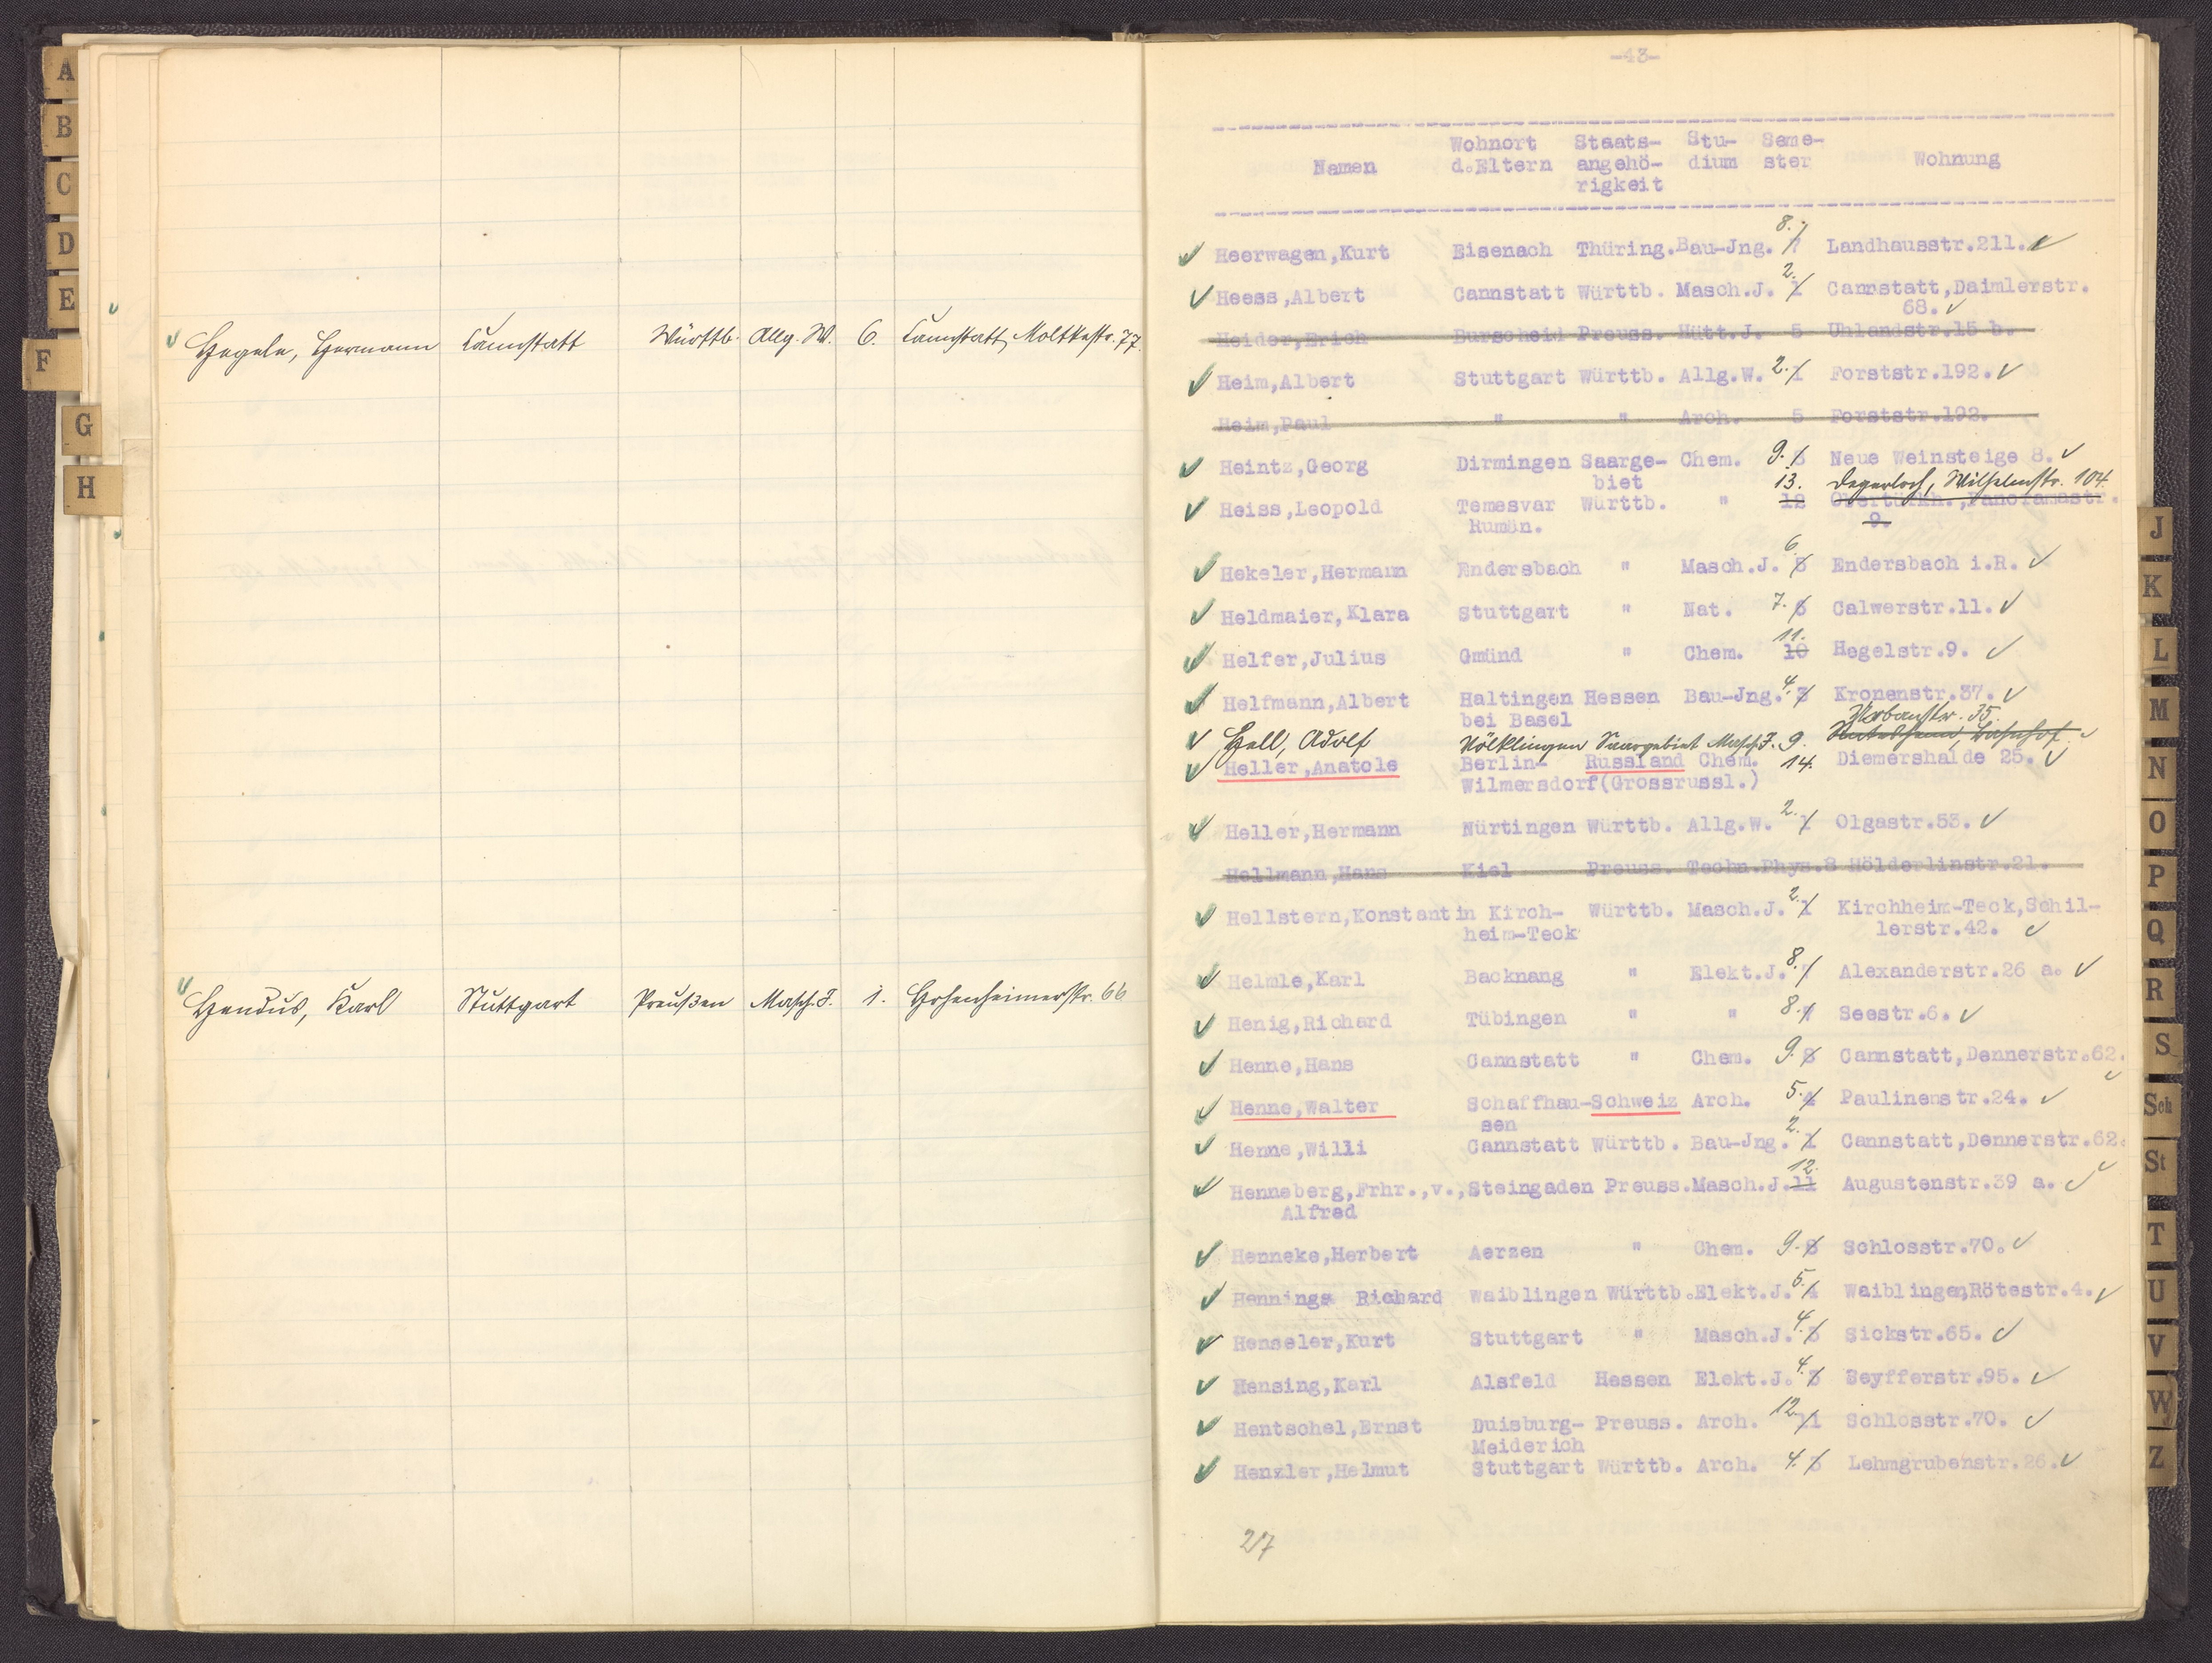 A
B
C
D
E
F
G
H
Hegele, Hermann Cannstatt Württb. Allg. W. 6. Cannstatt, Moltkestr. 77.
Hendus, Karl Stuttgart Preußen Masch. J. 1. Hohenheimerstr. 66
-43-
Namen Wohnort d.Eltern Staats-angehö-rigkeit Stu-dium Seme-ster Wohnung
Heerwagen,Kurt Eisenach Thüring. Bau-Jng. 8. 7 Landhausstr.211.
Heess,Albert Cannstatt Württb. Masch.J. 2. 1 Cannstatt,Daimlerstr.
68.
Heider,Erich Burscheid Preuss. Hütt.J. 5 Uhlandstr.15 b.
Heim,Albert Stuttgart Württb. Allg.W. 2. 1 Forststr.192.
Heim,Paul " " Arch. 5 Forststr.192.
Heintz,Georg Dirmingen Saarge- Chem. 9. 8 Neue Weinsteige 8.
biet 13. Degerloch, Wilhelmstr. 104
Heiss,Leopold Temesvar Württb. " 12 Obertürkh.,Panoramastr.
Rumän. 9.
Hekeler,Hermann Endersbach " Masch.J. 6. 5 Endersbach i.R.
Heldmaier,Klara Stuttgart " Nat. 7. 6 Calwerstr.11.
Helfer,Julius Gmünd " Chem. 11. 10 Hegelstr.9.
Helfmann,Albert Haltingen Hessen Bau-Jng. 4. 3 Kronenstr.37.
bei Basel Urbanstr. 35.
Hell, Adolf Völklingen Saargebiet Masch. J. 9. Bahnhof
Heller,Anatole Berlin- Russland Chem. 14. Diemershalde 25.
Wilmersdorf(Grossrussl.)
Heller,Hermann Nürtingen Württb. Allg.W. 2. 1 Olgastr.53.
Hellmann,Hans Kiel Preuss. Techn.Phys.8 Hölderlinstr.21.
Hellstern,Konstantin Kirch- Württb. Masch.J. 2. 1 Kirchheim-Teck,Schil-
heim-Teck lerstr.42.
Helmle,Karl Backnang " Elekt.J. 8. 7 Alexanderstr.26 a.
Henig,Richard Tübingen " " 8. 7 Seestr.6.
Henne,Hans Cannstatt " Chem. 9. 8 Cannstatt,Dennerstr.62.
Henne,Walter Schaffhau-Schweiz Arch. 5. 4 Paulinenstr.24.
sen
Henne,Willi Cannstatt Württb. Bau-Jng. 2. 1 Cannstatt,Dennerstr.62.
Henneberg,Frhr.,v.,Steingaden Preuss.Masch.J. 12. 11 Augustenstr.39 a.
Alfred
Henneke,Herbert Aerzen " Chem. 9. 8 Schlosstr.70.
Hennings Richard Waiblingen Württb.Elekt.J. 5. 4 Waiblingen,Rötestr.4.
Henseler,Kurt Stuttgart " Masch.J. 4. 3 Sickstr.65.
Hensing,Karl Alsfeld Hessen Elekt.J. 4. 3 Seyfferstr.95.
Hentschel,Ernst Duisburg- Preuss. Arch. 12. 11 Schlosstr.70.
Meiderich
Henzler,Helmut Stuttgart Württb. Arch. 4. 3 Lehmgrubenstr.26.
27
J
K
L
M
N
O
P
Q
R
S
Sch
St
T
U
V
W
Z